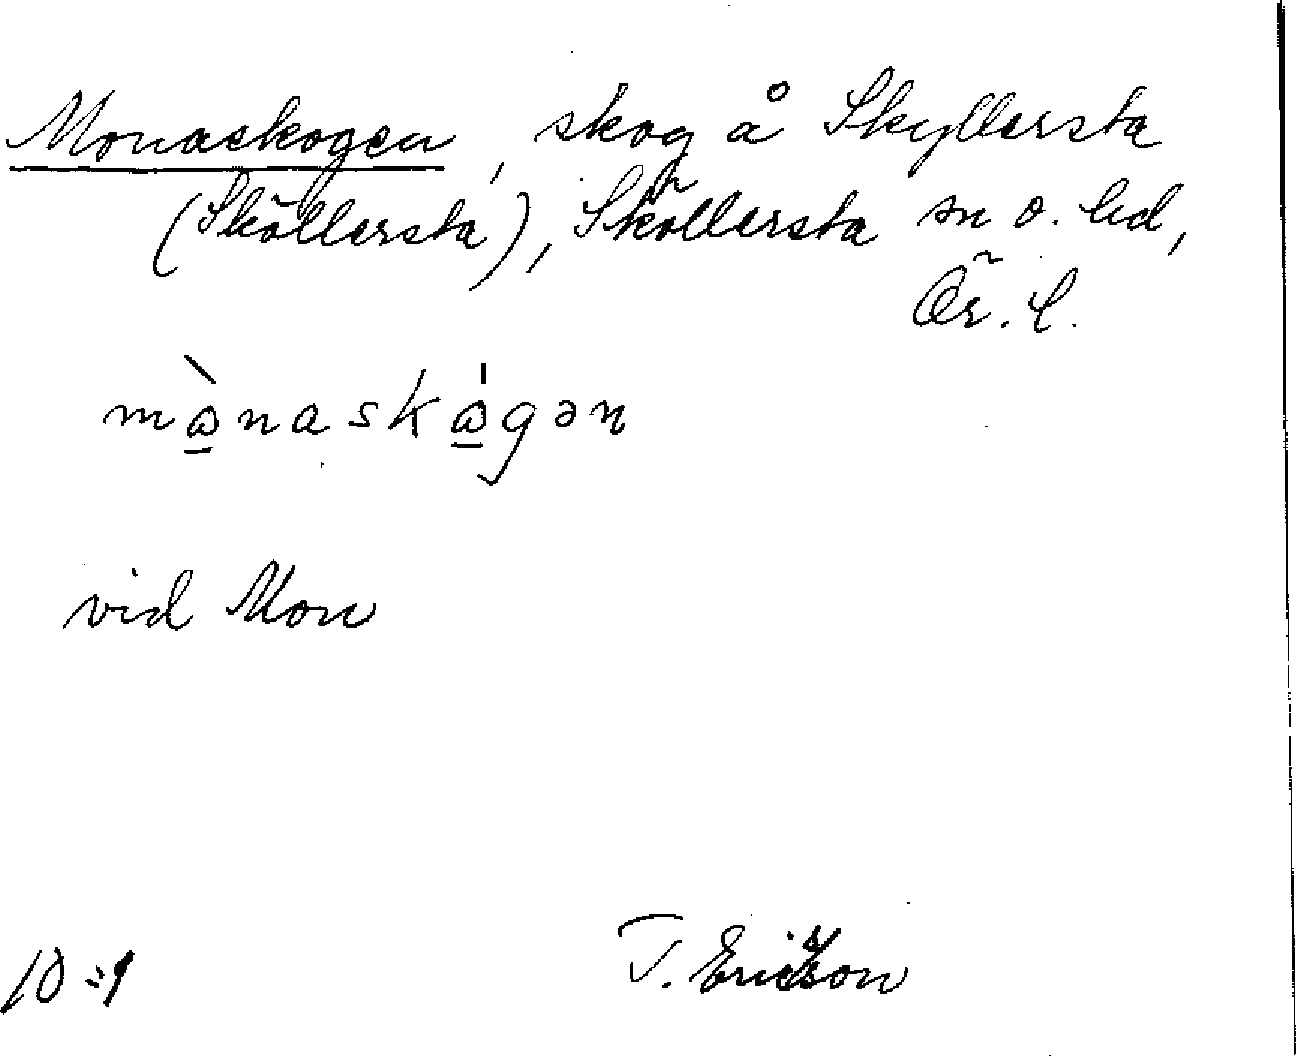 Monaskogen, skog å Skyllersta
(Sköllersta), Sköllersta sn o. hd,
Ör. l.
mωnaskωgən
vid Mon
10:9 T. Ericson